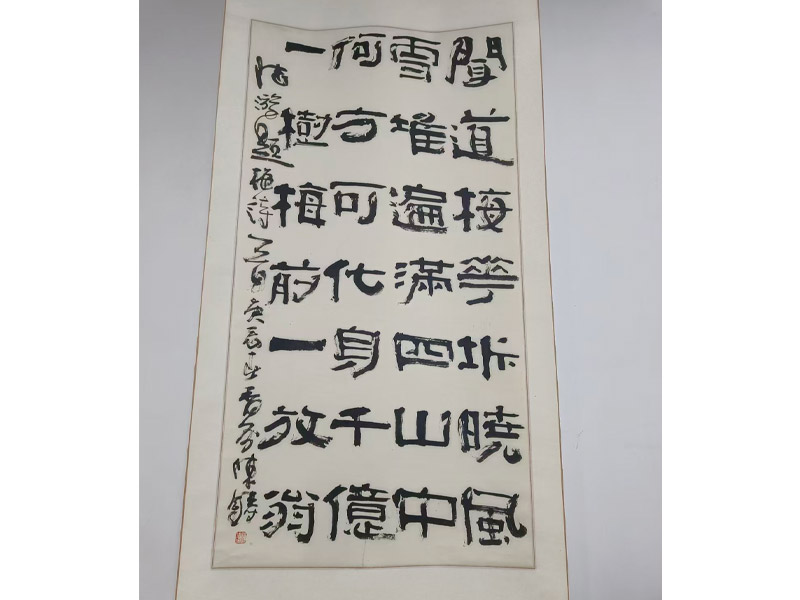 聞道梅花坼曉風
雪堆遍滿四山中
何方可化身千億
一樹梅前一放翁
陸游題梅詩 庚辰 陳